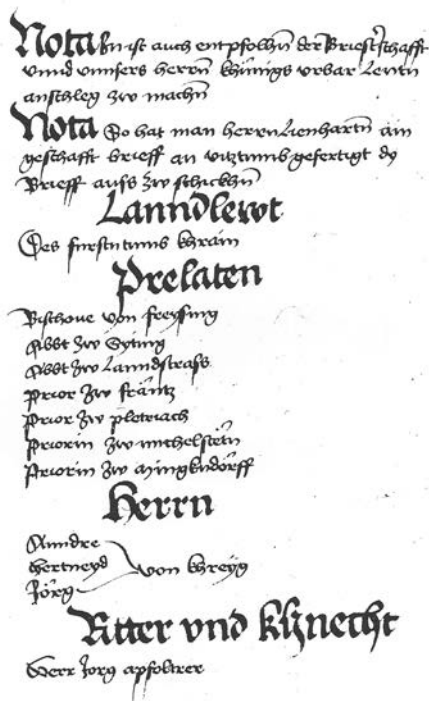 Nota In ist auch entpfolhn der Briesterschafft
vnnd vnnsers herrn khunigs vrbar Lewtn
anschleg zw machn
Nota So hat man herrn Lienhartn ain
geschafft brieff an viztumb gefertigt dy
Brieff auss zw schickhn
Lanndlewt
Des furstntumb khrain
Prelaten
Bischove von freysing
Abbt zw Syting
Abbt zw Lanndstrass
Prior zw fräntz
Prior zw pletriach
Priorin zw michelstetn
Priorin zw myngkhndorff
Herrn
Anndre
Hertneyd von khreyg
Jörg
Ritter vnd khnecht
Herr Jorg apfoltrer